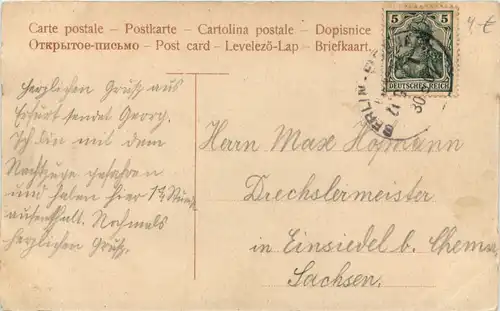 Carte postale – Postkarte – Cartolina postale – Dopisnice
Открытое-письмо – Post card – Levelező-Lap – Briefkaart.
4,-€
5 5
DEUTSCHES REICH
BERLIN
30
herzlichen Gruß aus
Erfurt sendet Georg.
Ich bin mit dem
Nachtzuge gefahren
und haben hier
aufenthalt. Nochmals
herzlichen Gruß.
Herrn Max Hofmann
Drechslermeister
in Einsiedel b. Chemn.
Sachsen.